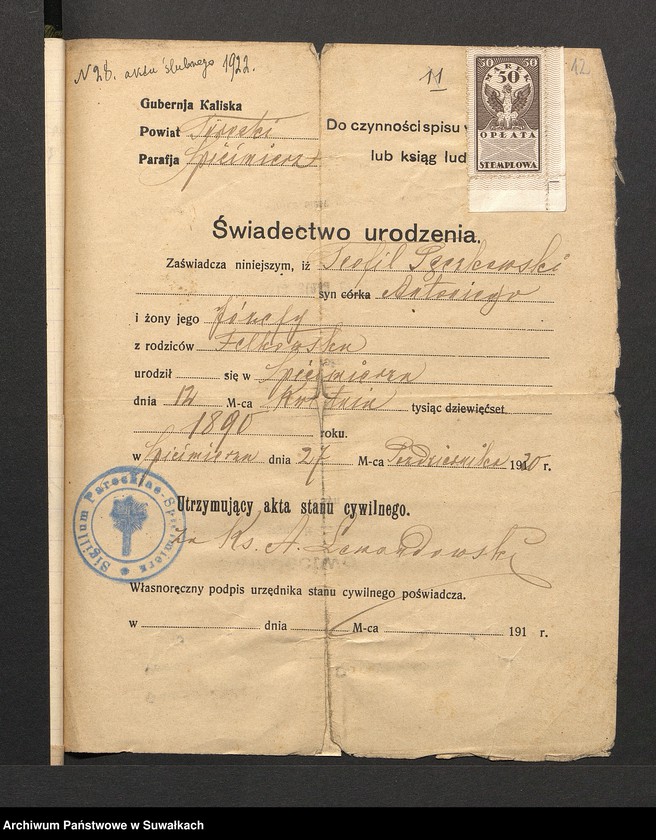 N 28. aktu ślubnego 1922.
11
12
50 50
MAREK
50
OPŁATA
STEMPLOWA
Gubernja Kaliska
Powiat Turecki
Parafja Spicimierz
Do czynności spisu
lub ksiąg lud
Świadectwo urodzenia.
Zaświadcza niniejszym, iż Teofil
syn córka Antoniego
i żony jego Józefy
z rodziców Felkowska
urodził się w Spicimierzu
dnia 12 M-ca Kwietnia tysiąc dziewięćset
1890 roku.
w Spicimierzu dnia 27 M-ca Października 1920 r.
Utrzymujący akta stanu cywilnego.
za Ks. A. Lewandowski
Sigillum Parochiae Spicimierz
Własnoręczny podpis urzędnika stanu cywilnego poświadcza.
w dnia M-ca 191 r.
Archiwum Państwowe w Suwałkach